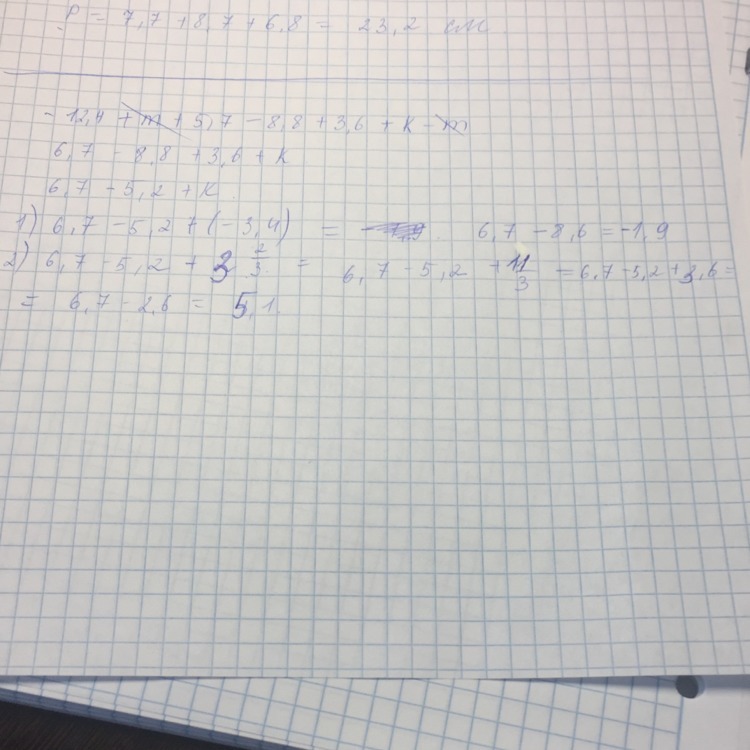 P = 7,7 + 8,7 + 6,8 = 23,2 см
- 12,4 + m + 5,7 - 8,8 + 3,6 + k - m
6,7 - 8,8 + 3,6 + k
6,7 - 5,2 + k
1) 6,7 - 5,2 + (-3,4) = 6,7 - 8,6 = -1,9
2) 6,7 - 5,2 + 3 2/3 = 6,7 - 5,2 + 11/3 = 6,7 - 5,2 + 3,6 =
= 6,7 - 2,6 = 5,1.